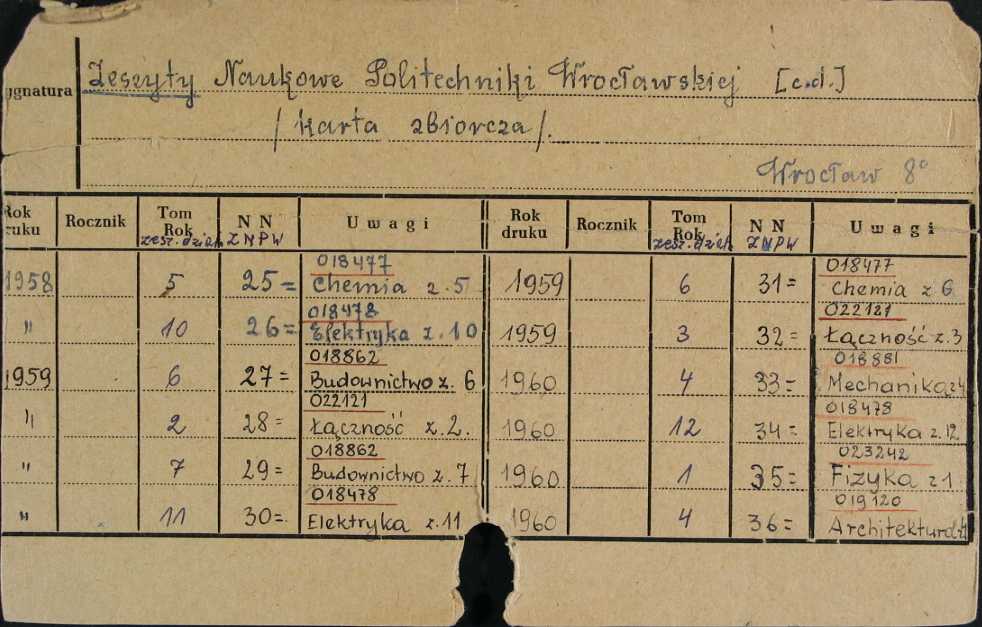 ygnatura Zeszyty Naukowe Politechniki Wrocławskiej [c.d.]
/karta zbiorcza/.
Wrocław 8°
Rok druku Rocznik Tom Rok zesz. dział. N N ZNPW Uwagi
1958 5 25= 018477 Chemia z. 5
" 10 26= 018478 Elektryka z. 10
1959 6 27= 018862 Budownictwo z. 6
" 2 28= 022121 Łączność z. 2.
" 7 29= 018862 Budownictwo z. 7
" 11 30=. 018478 Elektryka z. 11
Rok druku Rocznik Tom Rok zesz. dział. N N ZNPW Uwagi
1959 6 31= 018477 Chemia z 6.
1959 3 32= 022121 Łączność z. 3
1960 4 33= 018881 Mechanika z 4
1960 12 34= 018478 Elektryka z. 12
1960 1 35= 023242 Fizyka z 1
1960 4 36= 019120 Architektura z 4